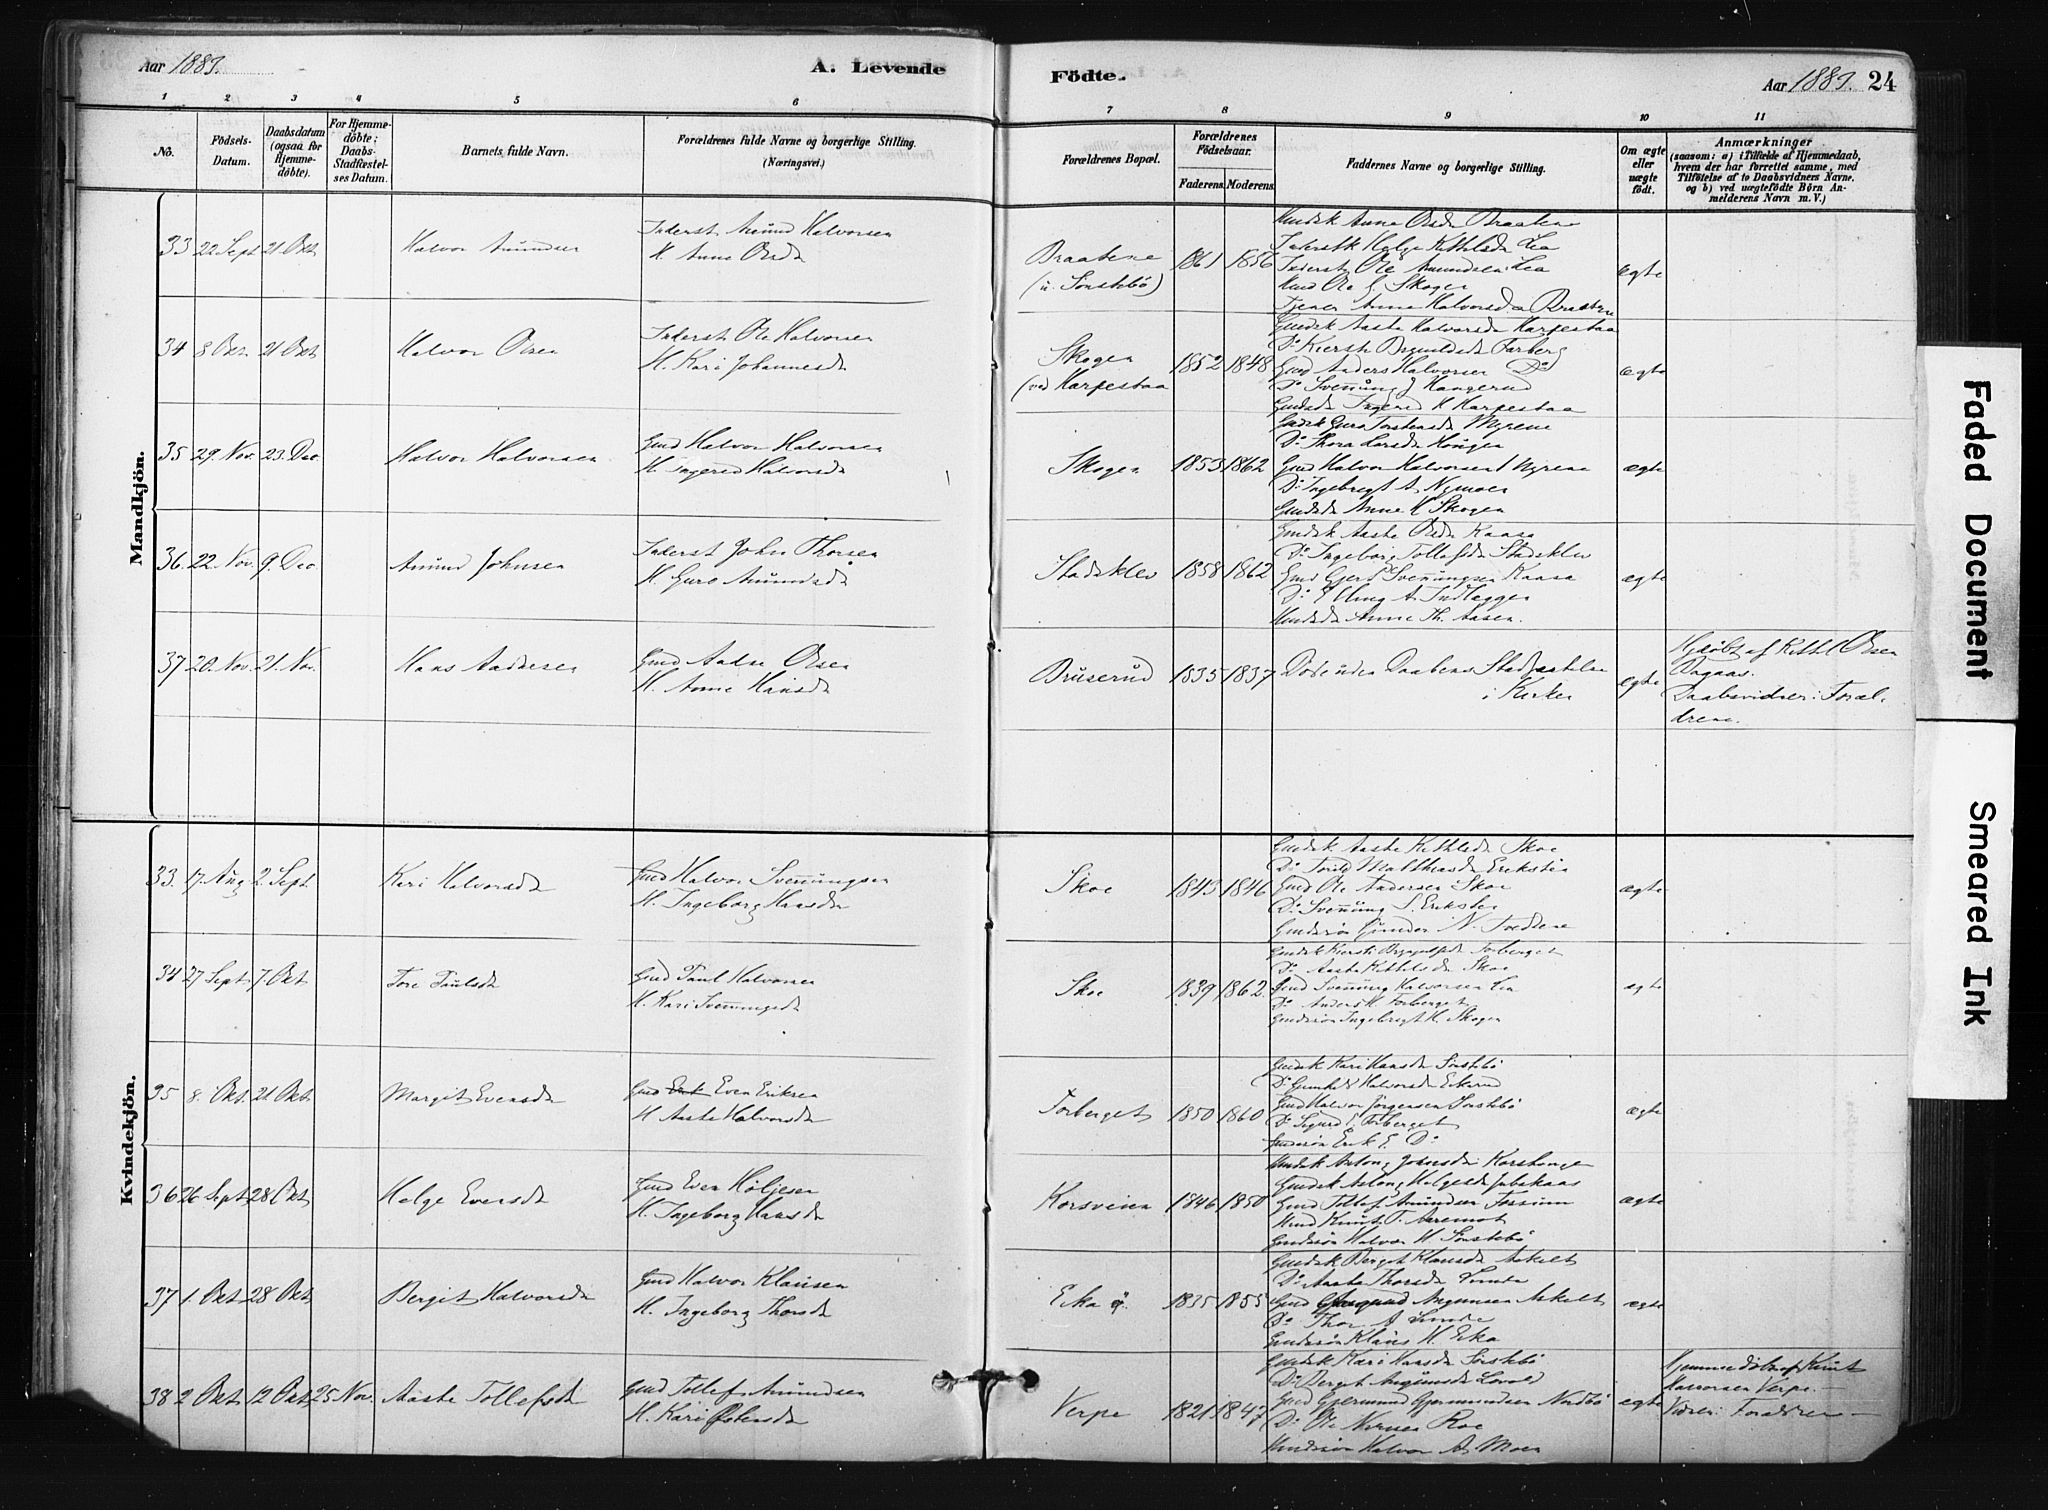 Aar 1883.
A. Levende
Födte.
Aar 1883. 24
1 2 3 4 5 6 7 8 9 10 11
No.
Födsels-Datum.
Daabsdatum (ogsaa for Hjemme-döbte).
For Hjemme-döbte: Daabs-Stadfæstel-ses Datum.
Barnets fulde Navn.
Forældrenes fulde Navne og borgerlige Stilling.
(Næringsvei.)
Forældrenes Bopæl.
Forældrenes Födselsaar.
Faderens. Moderens.
Faddernes Navne og borgerlige Stilling.
Om ægte eller uægte födt.
Anmærkninger
(saasom: a) i Tilfælde af Hjemmedaab,
hvem der har forrettet samme, med
Tilföielse af to Daabsvidners Navne.
og b) ved uægtefödte Börn An-
melderens Navn m. V.)
Mandkjön.
33 22 Sept 21 Okt
Halvor Amundsen
Inderst Amund Halvorsen
H. Anne Olsd
Braatene
(u. Sorstebö)
1861 1856
Anne Olsd Braatene
Inderstk Helge Kittelsd Lia
Inderst Ole Amundsen Lia
Ole Skogen
Tjener Anne Halvorsd Braatene
ægte
34 8 Okt. 21 Okt
Halvor Olsen
Inderst Ole Halvorsen
H. Kari Johannesd
Skogen
(ved Harpestaa
1852 1848
Gmdsk Aaste Halvorsd Harpestaa
Do Kiersti Forberg
Gmd Anders Halvorsen Do
Do Svennung J Haugerud
Ingered H Harpestaa
ægte
35 29. Nov. 23. Dec.
Halvor Halvorsen
Gmd Halvor Halvorsen
H. Ingered Halvorsd
Skogen
1853 1862
Guro Torstensd Myrene
Do Thora Larsd Haugen
Gmd Halvor Halvorsen Myrene
Do Ingebregt A. Nymoen
Anne H Skogen
ægte
36. 22. Nov. 9. Dec.
Amund Johnsen
Inderst John Thorsen
H. Guro Amundsd
Stadsklev
1858 1862
Gmdsk Aaste Olsd Kaasa
Do Ingeborg Tollefsd Stadsklev
Gmd Gjert Svennungsen Kaasa
Do A. Indlæggen
Anne Th. Aasen.
ægte
37 20. Nov. 21. Nov.
Hans Aadnesen
Gmd Aadne Olsen
H. Anne Hansd
Bruserud
1835 1837
Döde uden Daabens Stadfæstelse
i Kirken
ægte
Hjdöbt af Kittel Olsen
Daabsvidner: Foræl-
drene.
Kvindekjön.
33. 17. Aug 2. Sept.
Kari Halvorsd
Gmd Halvor Svennungsen
H. Ingeborg Hansd
Skoe
1843 1846
Gmdsk Aaste Kittilsd Skoe
Do Torild Matthiasd Eriksten
Gmd Ole Andersen Skoe
Do Svennung S. Eriksten
Gmdssön Gunder N. Tvedtene
ægte
34 27 Sept 7. Okt
Tore Paulsd
Gmd Paul Halvorsen
H. Kari Svennungsd
Skoe
1839 1862.
Gmdsk Kiersti Forberget
Do Aaste Kittilsd Skoe
Gmd Svennung Halvorsen Lia
Do Anders H. Forberget
Gmdssön Ingebregt H. Skogen
ægte
35 8. Okt. 21 Okt.
Margit Evensd
Gmd Even Eriksen
H Aaste Halvorsd
Forberget
1850 1860
Gmdsk Kari Hansd Sorstebö
Do Gunhild Halvorsd Eikerud
Gmd Halvor Jörgensen Sorstebö
Do Sigurd E. Forberget
Gmdssön Erik E. Do
ægte
36 26 Sept. 28 Okt
Helge Evensd
Gmd Even Höljesen
H. Ingeborg Hansd
Korsveien
1846 1850
Aslaug Johnsd Korshaugen
Gmdsk Aslaug Helgesd
Gmd Tollef Amundsen Fossum
Knut T. Aaremot
Gmdssön Halvor H. Sorstebö
ægte
37 1. Okt 28 Okt
Bergit Halvorsd
Gmd Halvor Klausen
H. Ingeborg Thorsd
Eika ö.
1835 1855
Gmdsk Berget Klausd Askelt
Do Aaste Thorsd
Gmd Askelt
Do Thor A
Gmdssön Klaus H. Eika
ægte
38 2 Okt 12 Okt 25 Nov.
Aaste Tollefsd
Gmd Tollef Amundsen
H. Kari Östensd
Verpe
1821 1847
Gmdsk Kari Hansd Sorstebö
Do Berget Lovold
Gmd Gjermund Gjermundsen Nordbö
Do Ole Roe
Halvor A. Moen
ægte
Hjemmedöbt af Knut
Halvorsen Verpe. –
Vidner: Forældrene –
Faded Document
Smeared Ink